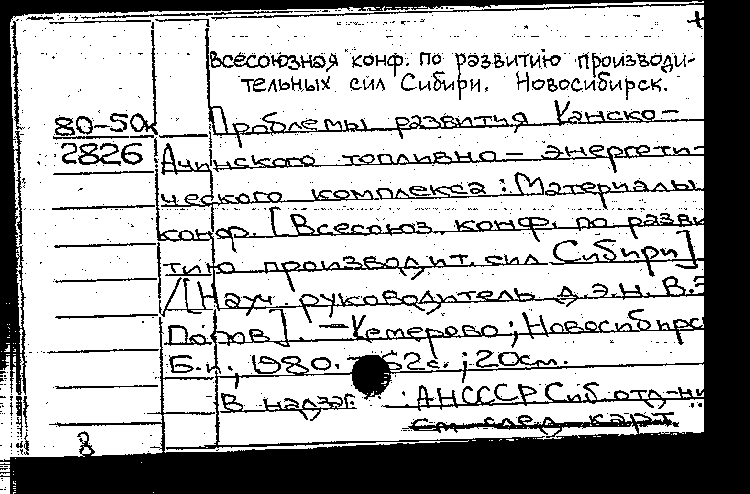 +
Всесоюзная конф. по развитию производи-
тельных сил Сибири. Новосибирск.
80-50к Проблемы развития Канско-
2826 Ачинского топливно-энергети-
ческого комплекса: Материалы
конф. [Всесоюз. конф. по разви
тию производит. сил Сибири]
/[Науч. руководитель д.э.н. В.Э
Попов]. - Кемерово; Новосибирс
Б.и., 1980. - 62с.; 20см.
В надзаг: АНСССР Сиб отд-ни
см след карт.
8